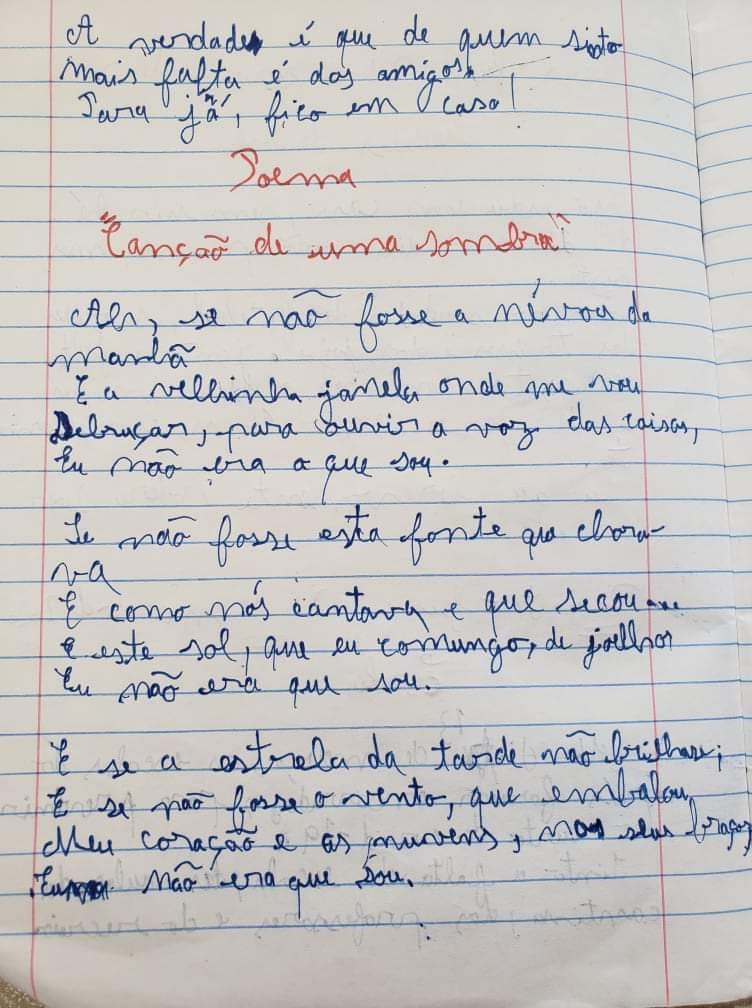 A verdade é que de quem sinto
mais falta é dos amigos.
Para já, fico em casa!
Poema
"Canção de uma sombra"
Ah, se não fosse a névoa da
manhã
E a velhinha janela onde me vou
Debruçar, para ouvir a voz das coisas,
Eu não era a que sou.
Se não fosse esta fonte que chora-
va
E como nós cantava e que secou...
E este sol, que eu comungo, de joelhos
Eu não era que sou.
E se a estrela da tarde não brilhasse;
E se não fosse o vento, que embalou,
Meu coração e as nuvens, nos seus braços,
Eu não era que sou.